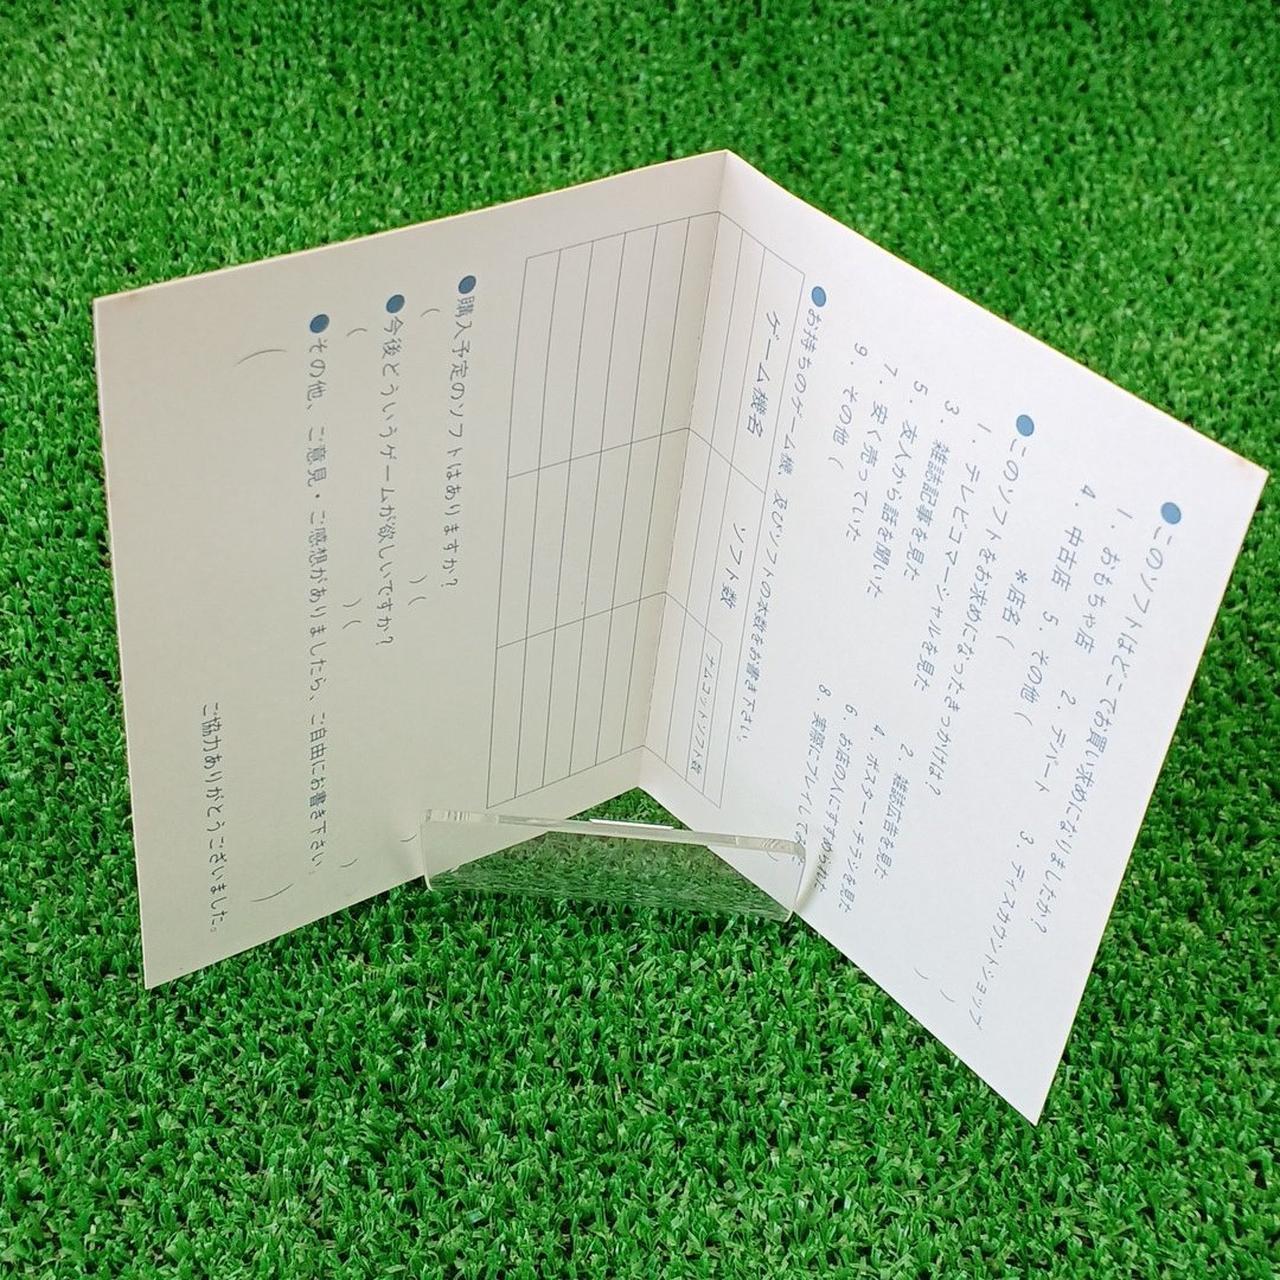 ●このソフトはどこでお買い求めになりましたか?
1. おもちゃ店 2. デパート 3. ディスカウントショップ
4. 中古店 5. その他 ( )
*店名 ( )
●このソフトをお求めになったきっかけは?
1. テレビコマーシャルを見た 2. 雑誌広告を見た
3. 雑誌記事を見た 4. ポスター・チラシを見た
5. 友人から話を聞いた 6. お店の人にすすめられた
7. 安く売っていた 8. 実際にプレイしてみた
9. その他 ( )
●お持ちのゲーム機 及びソフトの本数をお書き下さい。
ゲーム機名 ソフト数 ナムコットソフト数
●購入予定のソフトはありますか?
( ) ( )
●今後どういうゲームが欲しいですか?
( ) ( )
●その他、ご意見・ご感想がありましたら、ご自由にお書き下さい。
( )
ご協力ありがとうございました。